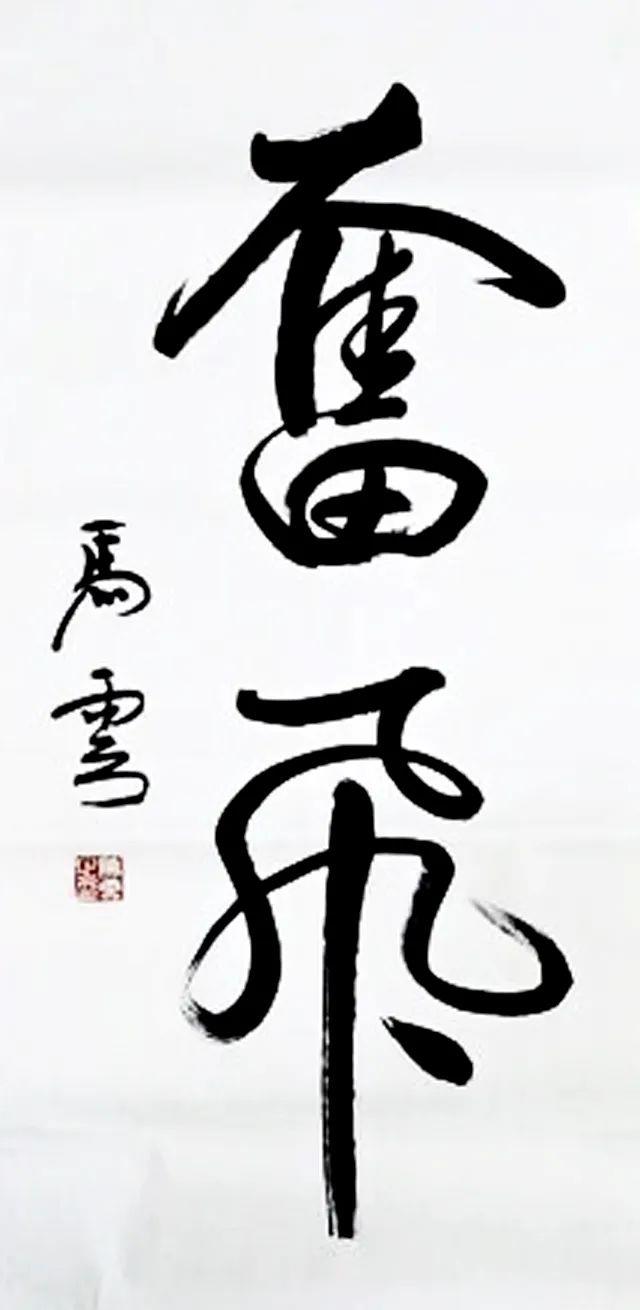 奮飛
馬雲